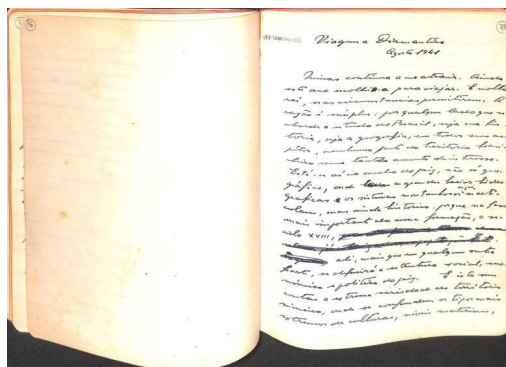 36
37
Viagem a Diamantina
Agosto 1941
Minas continua a me atrair. Ainda
este ano escolhi-a para viajar. E voltarei,
se as circunstancias permitirem. A
razão é simples: por qualquer lado que se
aborde o estudo do Brasil, seja na his-
toria, seja a geografia, em todos seus as-
pétos, nenhuma parte do territorio brasi-
leiro reune tanto elemento de interesse.
Está-se aí no centro do país, não só geo-
gráfico, onde as grandes bacias hidro-
graficas e os sistemas montanhosos se arti-
culam, mas ainda historico, porque na fase
mais importante da nossa formação, o se-
culo XVIII,
ali, mais que em qualquer outra
parte, se definirá a estrutura social, eco-
nômica e politica do país. E isto sem
contar a extrema variedade do territorio
mineiro, onde se confundem os tipos mais
extremos de culturas, niveis materiais,